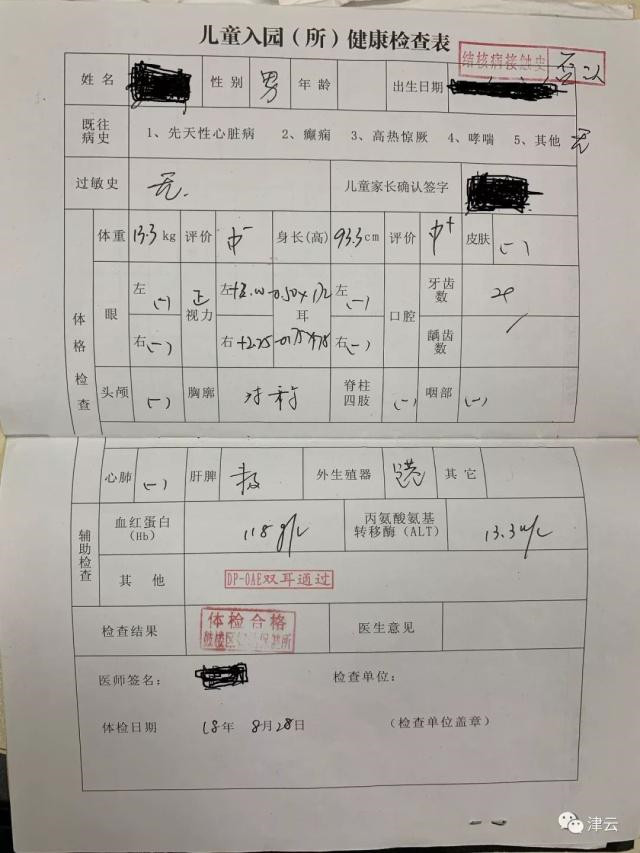 儿童入园（所）健康检查表
结核病接触史 否认
姓名 性别 男 年龄 出生日期
既往病史 1、先天性心脏病 2、癫痫 3、高热惊厥 4、哮喘 5、其他 无
过敏史 无. 儿童家长确认签字
体格检查
体重 13.3 kg 评价 中- 身长(高) 93.3 cm 评价 中+ 皮肤 (-)
眼 左 (-) 视力 正 左 耳 左 (-) 口腔 牙齿数
右 (-) 右 +2.75 右 (-) 龋齿数 /
头颅 (-) 胸廓 对称 脊柱四肢 (-) 咽部 (-)
心肺 (-) 肝脾 外生殖器 其它
辅助检查
血红蛋白(Hb) 118 g/L 丙氨酸氨基转移酶(ALT) 13.3 u/L
其他 DP-OAE双耳通过
检查结果 体检合格 医生意见
医师签名： 检查单位：
体检日期 18年 8月28日 (检查单位盖章)
津云